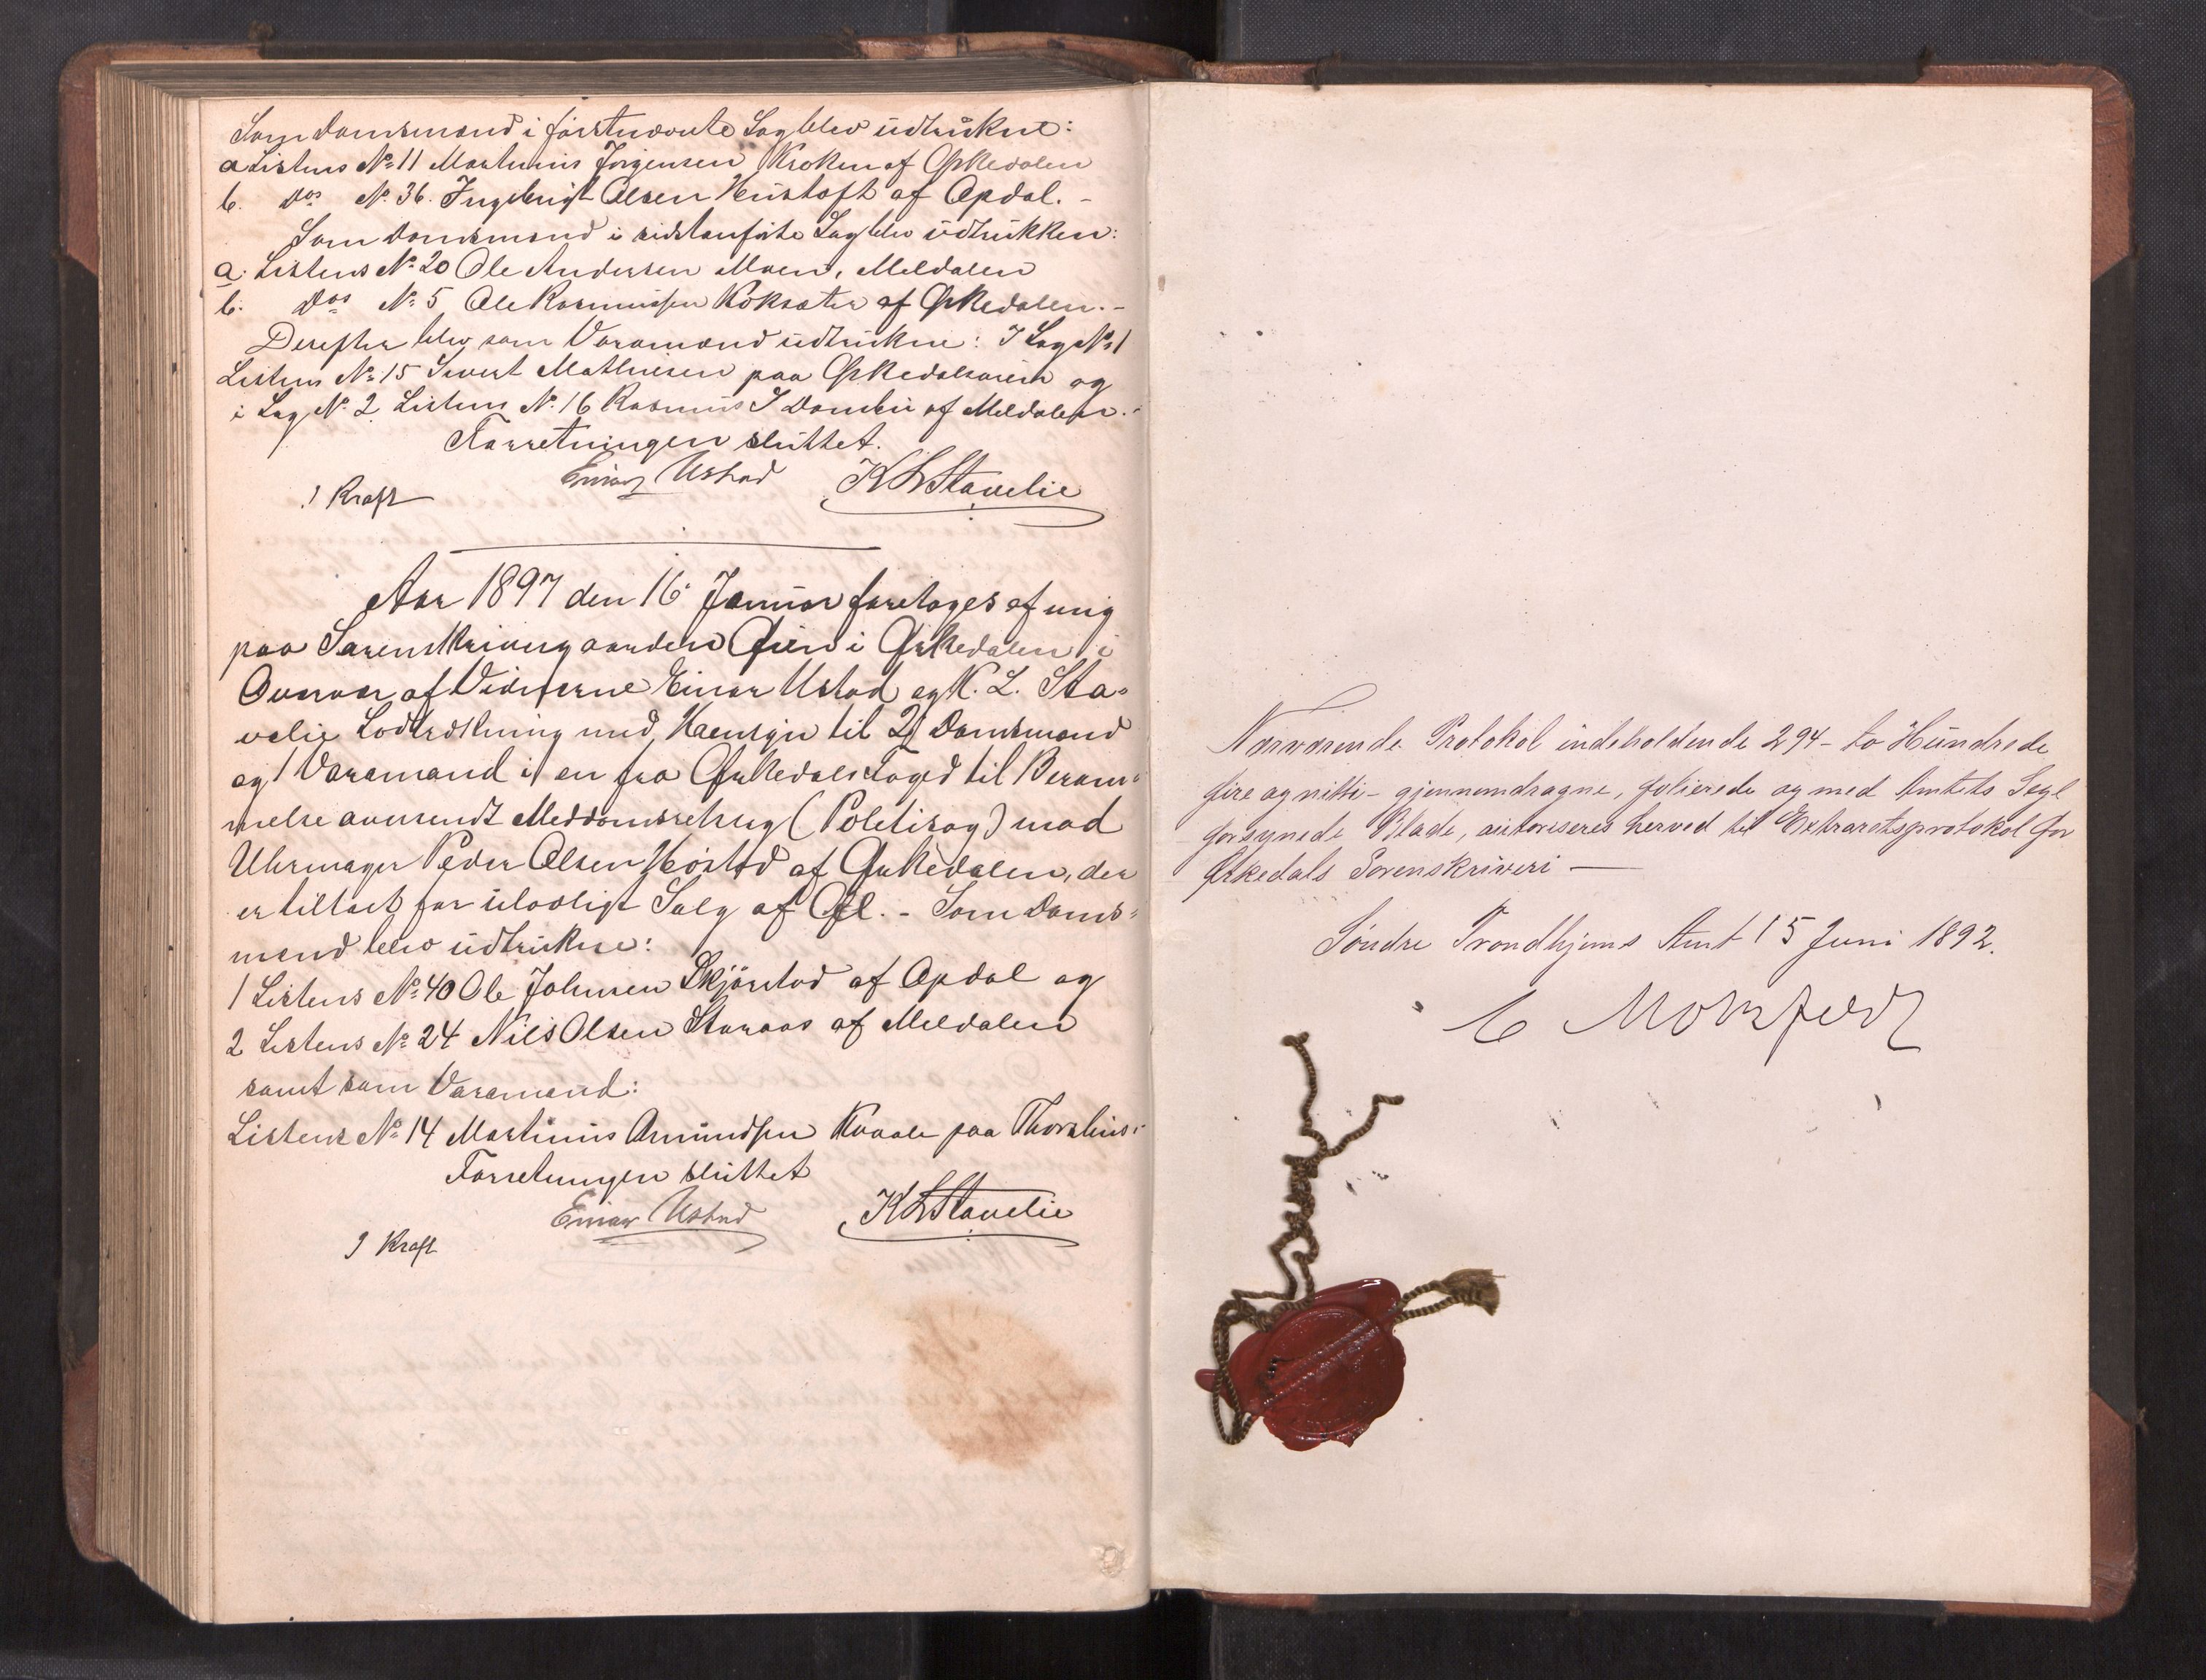 Som Domsmænd i førstnævnte Sag blev udtrukne:
a Listens No 11 Martinus Jørgensen Kroken af Ørkedalen
b. Dos No 36. Ingebrigt Olsen af Opdal. -
Som Domsmænd i sidstanførte Sag blev udtrukken:
a. Listens No 20 Ole Andersen Moen, Meldalen
b. Dos No 5 Ole Rasmussen Koksæter af Ørkedalen. -
Derefter blev som Varamænd udtrukne: I Sag No 1
Listens No 15 Sivert Mathiesen paa Ørkedalsøren og
i Sag No 2 Listens No 16 Rasmus J Dombu af Meldalen. -
Forretningen sluttet.
J Kraft Einar Ustad K L Stavelie
Aar 1897 den 16 Januar foretoges af mig
paa Sorenskrivergaarden Øien i Ørkedalen i
Overvær af Vidnerne Einar Ustad og K. L. Sta-
velie Lodtrækning med Hensyn til 2 Domsmænd
og 1 Varamand i en fra Ørkedals Foged til Beram-
melse oversendt Meddomsretssag (Politisag) mod
Uhrmager Peder Olsen Høstad af Ørkedalen, der
er tiltalt for ulovligt Salg af Øl. - Som Doms-
mænd blev udtrukne:
1 Listens No 40 Ole Johnsen Skjørstad af Opdal og
2 Listens No 24 Nils Olsen Storaas af Meldalen
samt som Varamand:
Listens No 14 Martinus Amundsen Kvaale paa Thorshus. -
Forretningen sluttet
J Kraft Einar Ustad K L Stavelie
Nærværende Protokol indeholdende 294 - to Hundrede
fire og nitti - gjennemdragne, folierede og med Amtets Segl
forsynede Blade, autoriseres herved til Extraretsprotokol for
Ørkedals Sorenskriveri —
Söndre Trondhjems Amt 15 Juni 1892.
C Motzfeldt